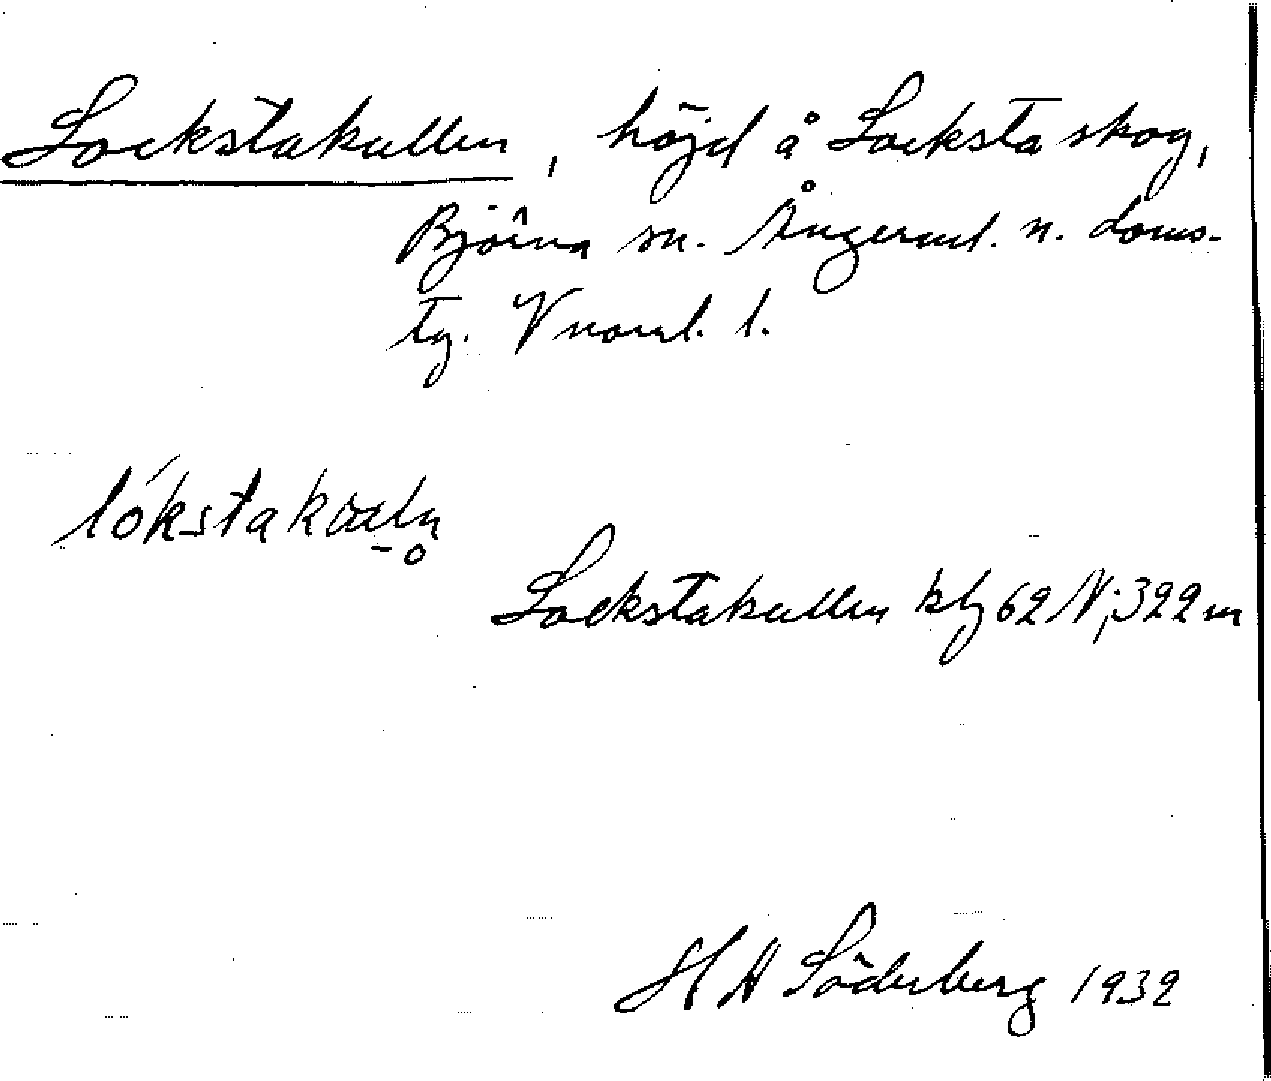 Lockstakullen, höjd å Locksta skog,
Björna sn. Ångerml. n. doms-
tg. Vnorrl. l.
lókstakɷlln̥
Lockstakullen kbl 62 N; 322 m
H A Söderberg 1932